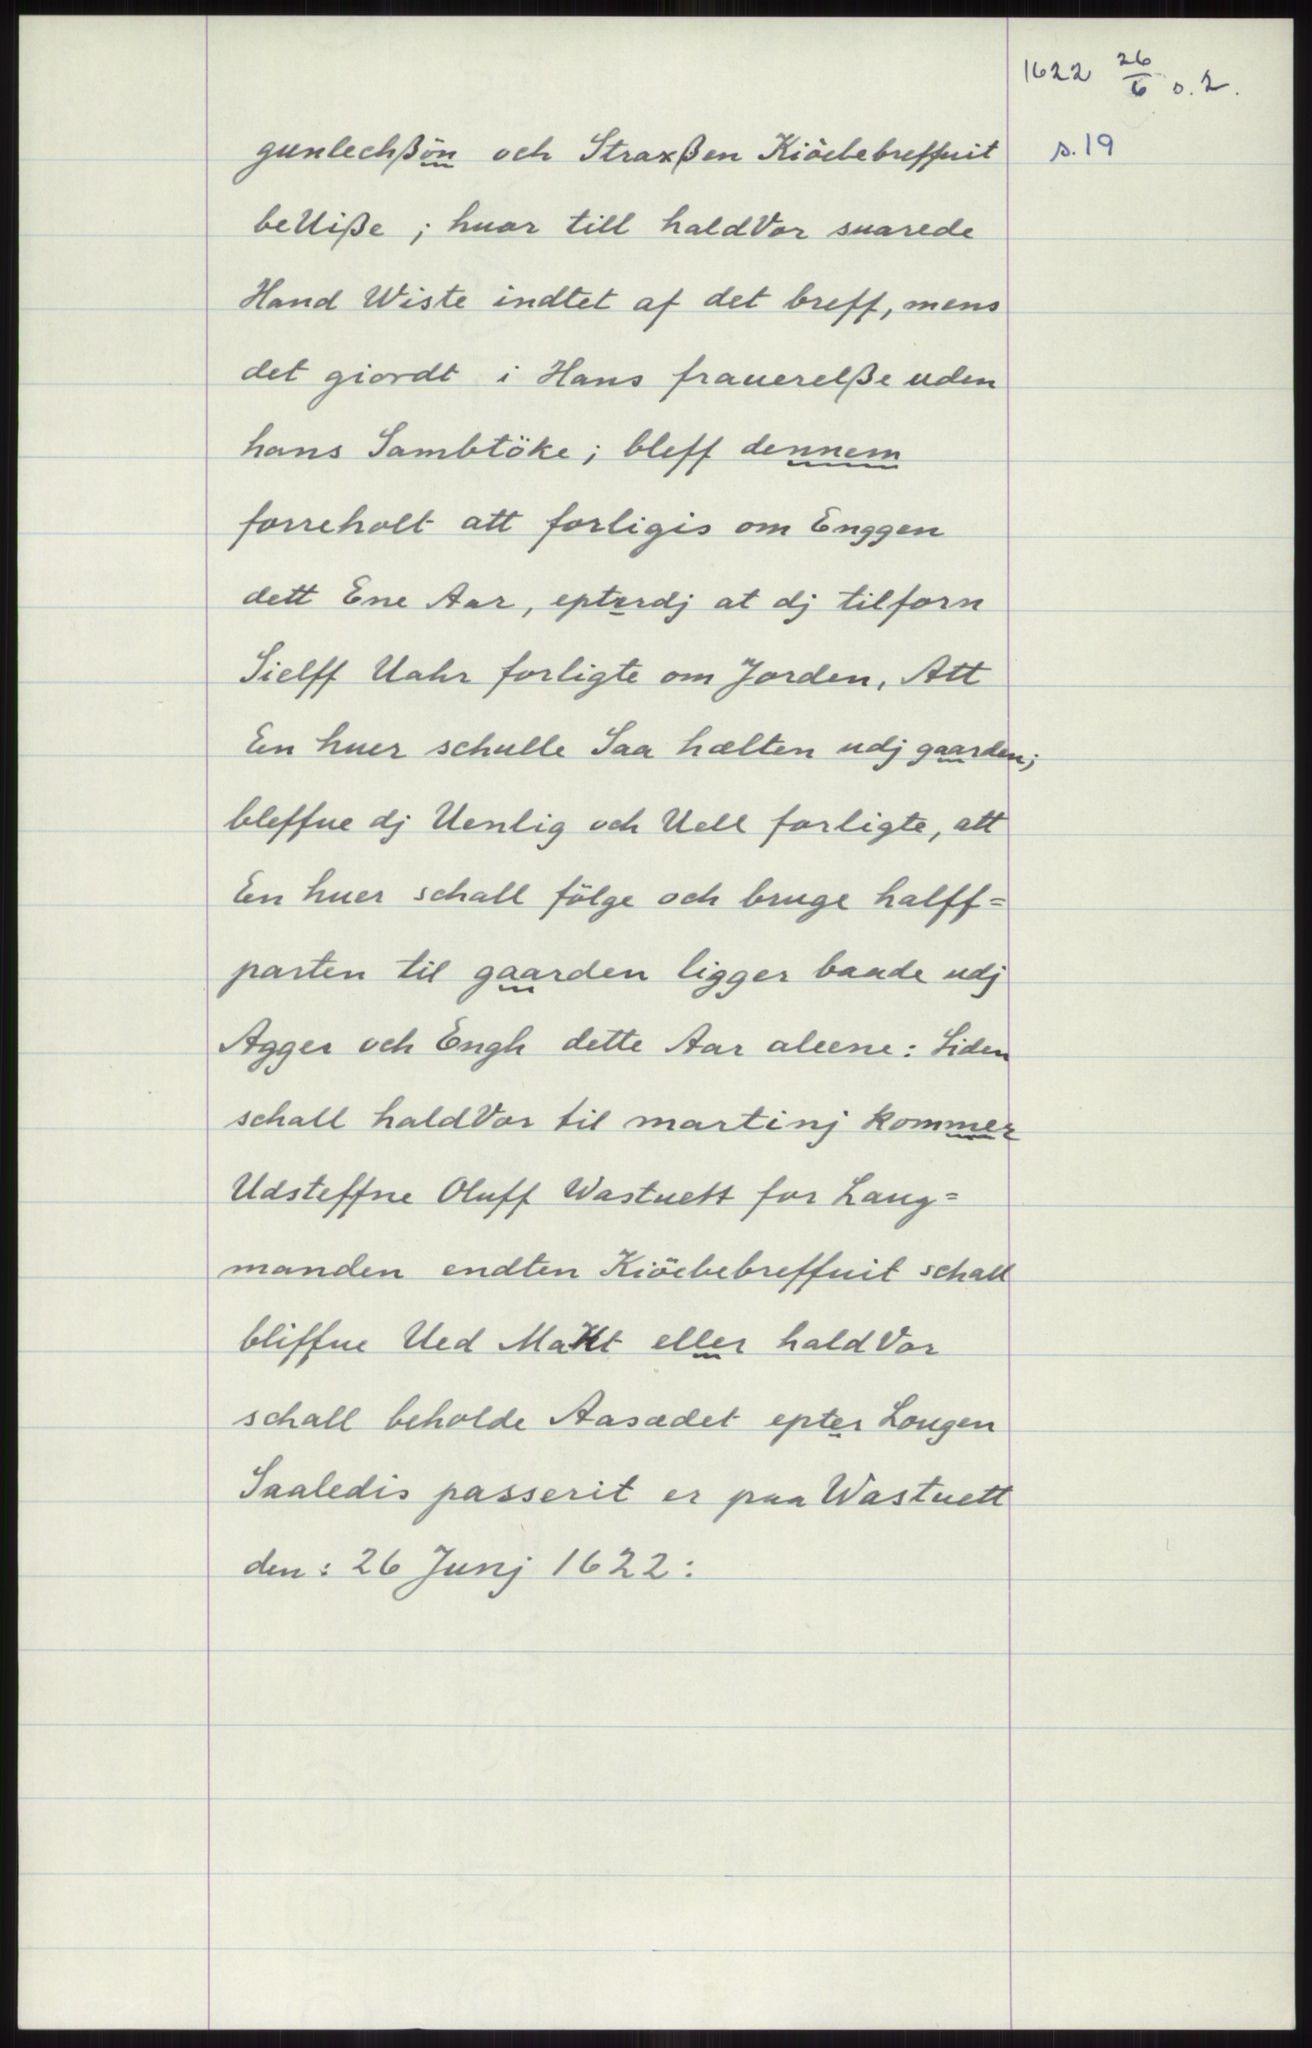 1622 26/6 s. 2.
s. 19
gunlechßön och Straxßen Kiöebebreffuit
beUiße ; huor till haldVor suarede
Hand Wiste indtet af det breff, mens
det giordt i Hans frauerelße uden
hans Sambtöke ; bleff dennem
forreholt att forligis om Enggen
dett Ene Aar, epterdj at dj tilforn
Sielff Uahr forligte om Jorden, Att
En huer schulle Saa hælten udj gaarden ;
bleffue dj Uenlig och Uell forligte, att
En huer schall fölge och bruge halff=
parten til gaarden ligger baade udj
Agger och Engh dette Aar aleene : Siden
schall haldVor til martinj kommer
Udsteffne Oluff Wastuett for Laug=
manden endten Kiöebebreffuit schall
bliffue Ued Makt eller haldVor
schall beholde Aasædet epter Lougen
Saaledis passerit er paa Wastuett
den : 26 Junj 1622 :